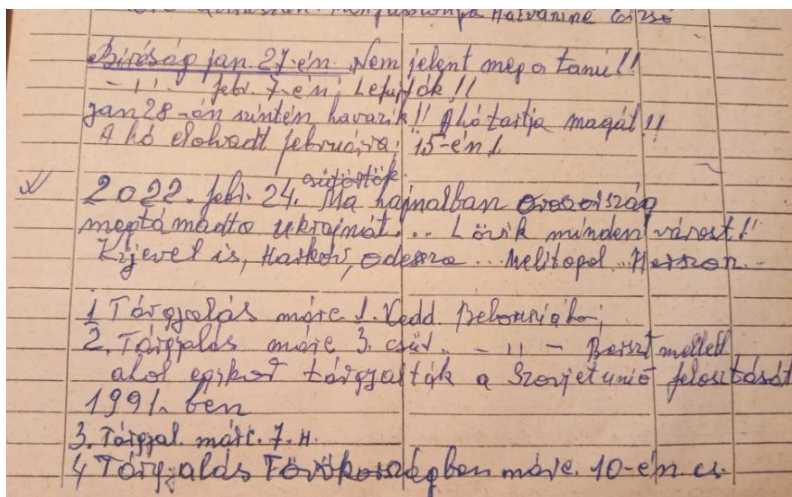 Hatvaniné Erzsó
Bíróság jan. 27-én. Nem jelent meg a tanú!!
- 11 - febr. 7-én; Lefújták!!
Jan 28-án szintén havazik!! A hó tartja magát!!
A hó elolvadt februárra; 15-én!
csütörtök.
2022. febr. 24. Ma hajnalban oroszország
megtámadta ukrajnát... Lövik minden várost!!
Kijevet is, Harkov, odessza... Melitopol.. Herszon..
1 Tárgyalás márc. 1. Kedd.
2. Tárgyalás márc 3. csüt. - 11 - Breszt mellett
ahol egykor tárgyalták a Szovjetunió felosztását
1991.-ben
3. Tárgyal. márc. 7. H.
4 Tárgyalás Törökországban márc. 10-én cs.